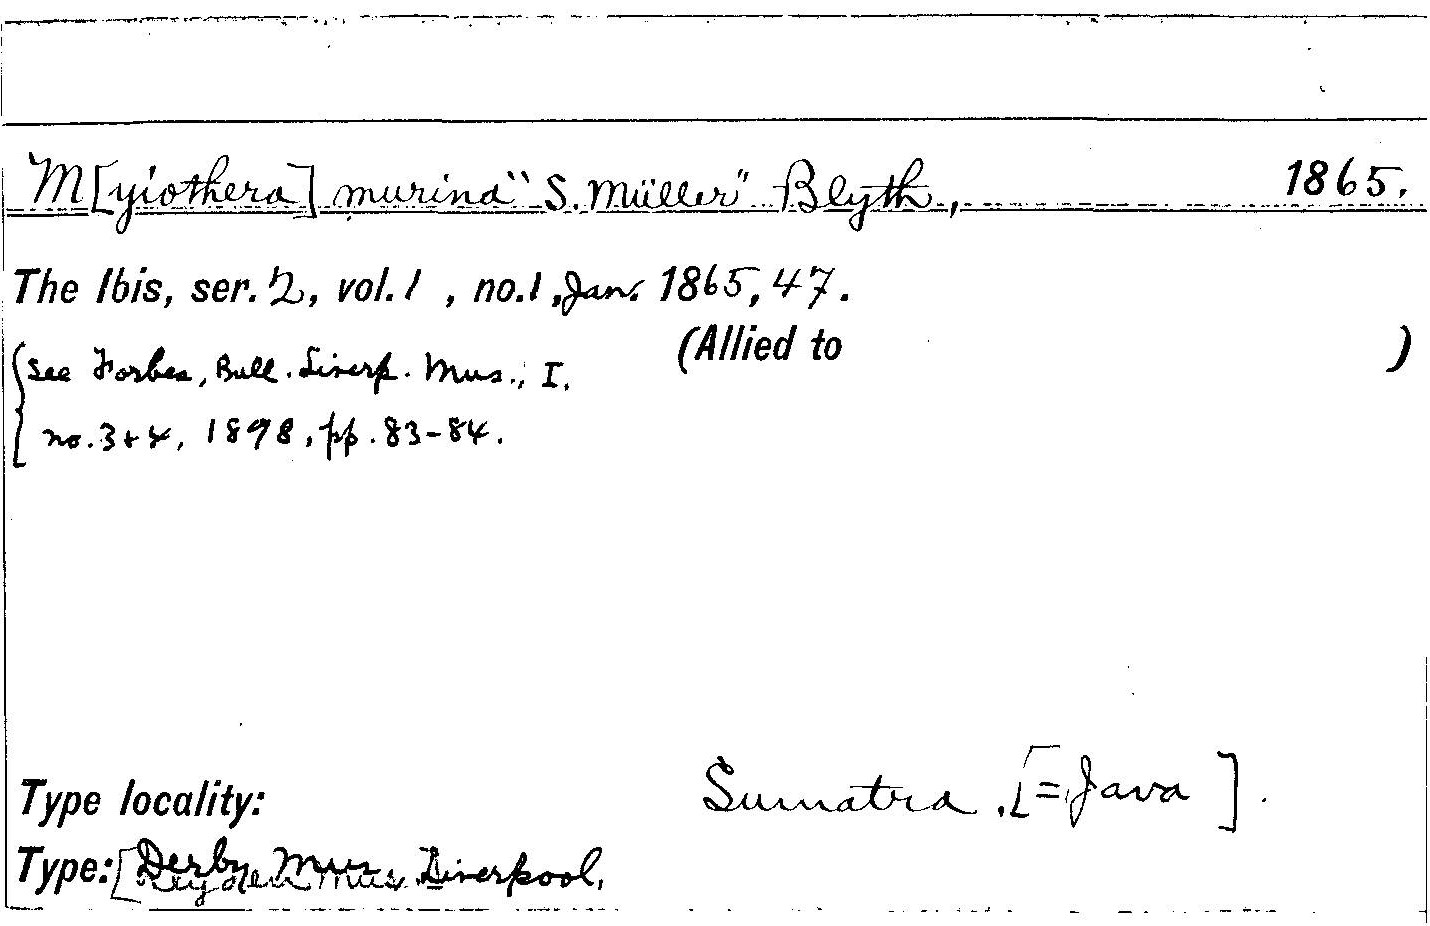 M[yiothera] murina "S. Müller" Blyth, 1865.
The Ibis, ser. 2, vol. 1, no. 1, Jan. 1865, 47.
(Allied to )
{See Forbes, Bull. Liverp. Mus., I.
no. 3+4, 1898, pp. 83-84.
Type locality: Sumatra. [=Java].
Type: [Derby Mus. Liverpool.